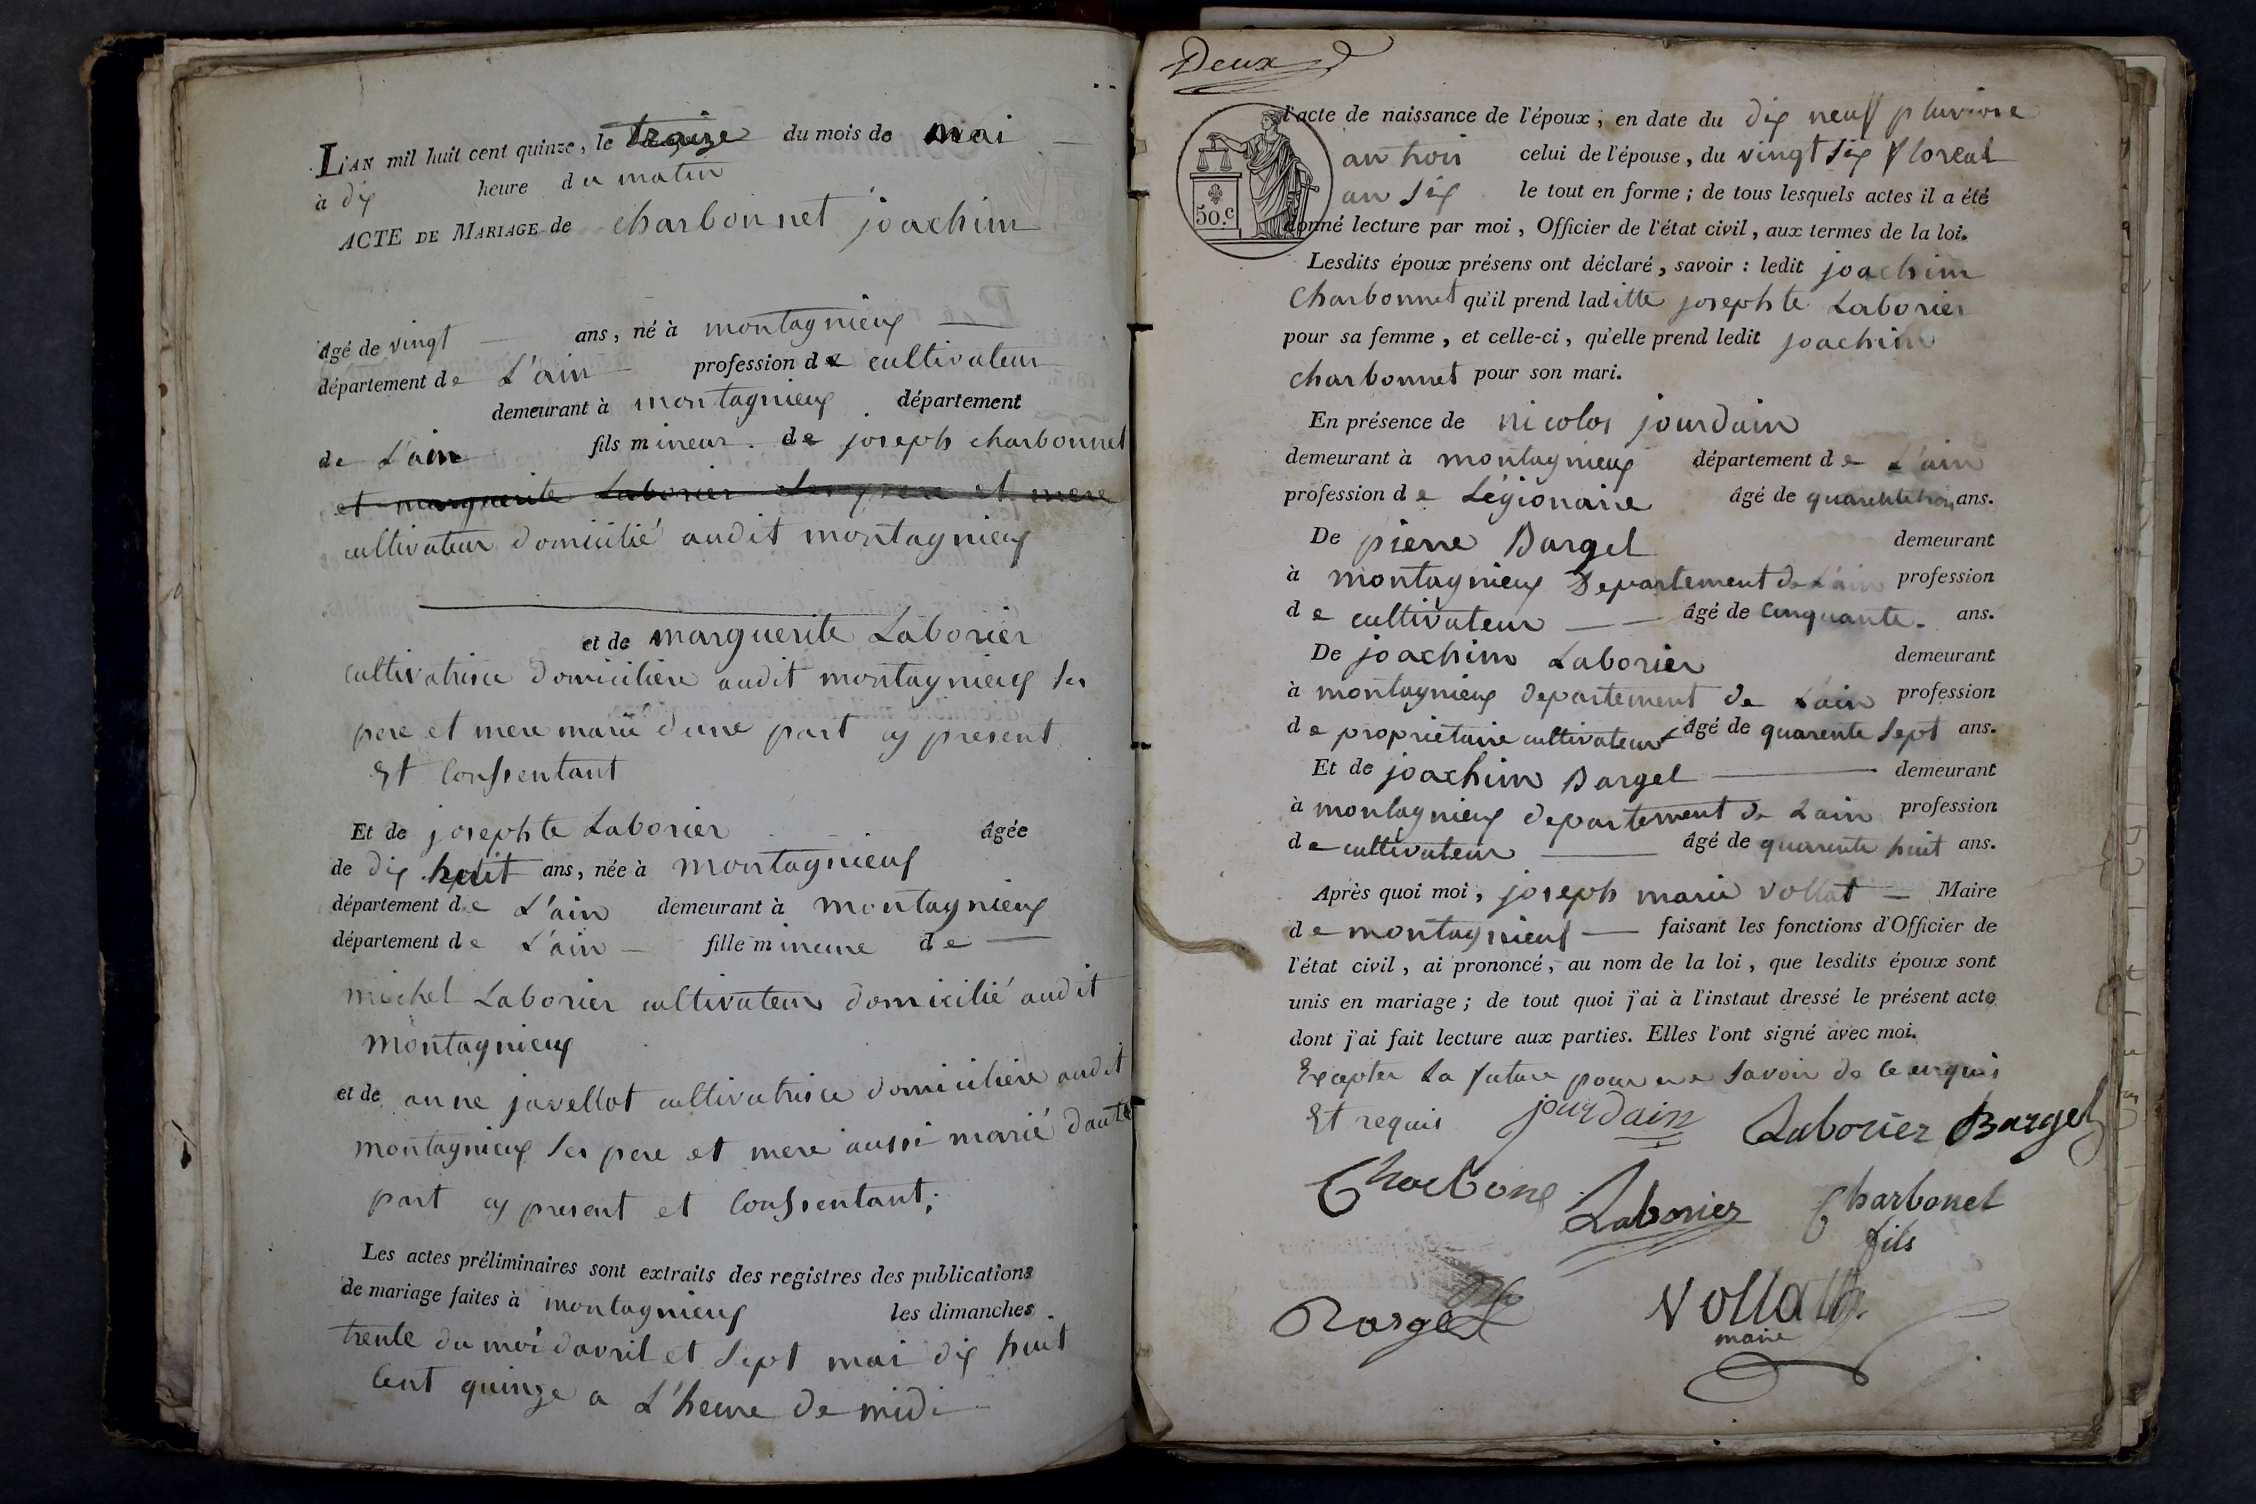 L'AN mil huit cent quinze, le traize du mois de mai
à dix heure du matin
ACTE DE MARIAGE de charbonnet joachim
âgé de vingt ans, né à montagnieux
département de L'ain profession de cultivateur
demeurant à montagnieux département
de L'ain fils mineur de joseph charbonnet
et marguerite Laborier ses pere et mere
cultivateur domicilié audit montagnieux
et de marguerite Laborier
cultivatrice domiciliere audit montagnieux ses
pere et mere marié d'une part cy present
Et Consentant
Et de josephte Laborier âgée
de dix huit ans, née à montagnieux
département de L'ain demeurant à montagnieux
département de L'ain fille mineure de
michel Laborier cultivateur domicilié audit
montagnieux
et de anne javellot cultivatrice domiciliere audit
montagnieux ses pere et mere aussi marié d'autre
part cy present et Consentant;
Les actes préliminaires sont extraits des registres des publications
de mariage faites à montagnieux les dimanches
trente du moi d'avril et sept mai dix huit
Cent quinze a L'heure de midi
Deux
l'acte de naissance de l'époux; en date du dix neuf pluviose
an trois celui de l'épouse, du vingt six floreal
an six le tout en forme; de tous lesquels actes il a été
50.c donné lecture par moi, Officier de l'état civil, aux termes de la loi.
Lesdits époux présens ont déclaré, savoir: ledit joachim
Charbonnet qu'il prend laditte josephte Laborier
pour sa femme, et celle-ci, qu'elle prend ledit joachim
charbonnet pour son mari.
En présence de nicolas jourdain
demeurant à montagnieux département de L'ain
profession de Légionaire âgé de quarentetrois ans.
De pierre Bargel demeurant
à montagnieux Departement de L'ain profession
de cultivateur âgé de Cinquante ans.
De joachim Laborier demeurant
à montagnieux departement de L'ain profession
de proprietaire cultivateur âgé de quarente sept ans.
Et de joachim Bargel demeurant
à montagnieux departement de Lain profession
de cultivateur âgé de quarente huit ans.
Après quoi moi, joseph marie vollat Maire
de montagnieux faisant les fonctions d'Officier de
l'état civil, ai prononcé, au nom de la loi, que lesdits époux sont
unis en mariage; de tout quoi j'ai à l'instaut dressé le présent acte
dont j'ai fait lecture aux parties. Elles l'ont signé avec moi.
Excepter La future pour ne savoir de ce enquis
Et requis jourdain Laborier Bargel
Charbone Laborier Charbonel
fils
Bargel Vollat
maire